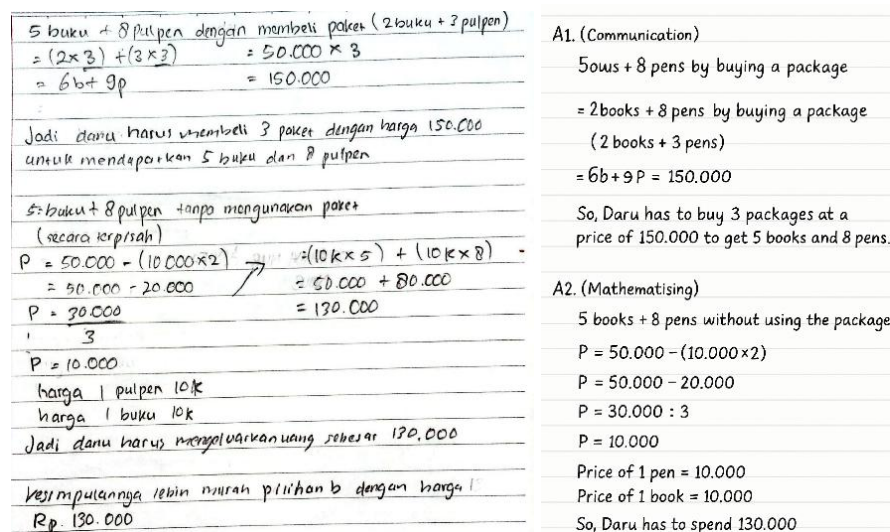 5 buku + 8 pulpen dengan membeli paket (2 buku + 3 pulpen)
= (2x3) + (3x3) = 50.000 x 3
= 6b + 9p = 150.000
Jadi danu harus membeli 3 paket dengan harga 150.000
untuk mendapatkan 5 buku dan 8 pulpen
5 buku + 8 pulpen tanpa mengunakan paket
(secara terpisah)
P = 50.000 - (10.000x2) → = (10k x 5) + (10k x 8)
= 50.000 - 20.000 = 50.000 + 80.000
P = 30.000 = 130.000
3
P = 10.000
harga 1 pulpen 10k
harga 1 buku 10k
Jadi danu harus mengeluarkan uang sebesar 130.000
kesimpulannya lebih murah pilihan b dengan harga
Rp. 130.000
A1. (Communication)
5ows + 8 pens by buying a package
= 2books + 8 pens by buying a package
(2 books + 3 pens)
= 6b + 9P = 150.000
So, Daru has to buy 3 packages at a
price of 150.000 to get 5 books and 8 pens.
A2. (Mathematising)
5 books + 8 pens without using the package
P = 50.000 - (10.000x2)
P = 50.000 - 20.000
P = 30.000 : 3
P = 10.000
Price of 1 pen = 10.000
Price of 1 book = 10.000
So, Daru has to spend 130.000